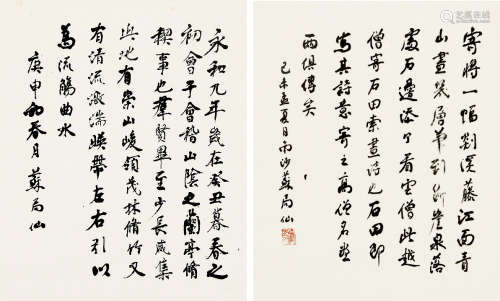 寄將一幅剡溪藤江面青
山畫幾層筆到斷崖泉落
處石邊添个看雲僧此越
僧寄石田索畫詩也石田即
寫其詩意寄之高僧名畫
兩俱傳矣
己未孟夏日南沙蘇局仙
永和九年歲在癸丑暮春之
初會于會稽山陰之蘭亭脩
禊事也羣賢畢至少長咸集
此地有崇山峻領茂林脩竹又
有清流激湍暎帶左右引以
為流觴曲水
庚申初春月蘇局仙